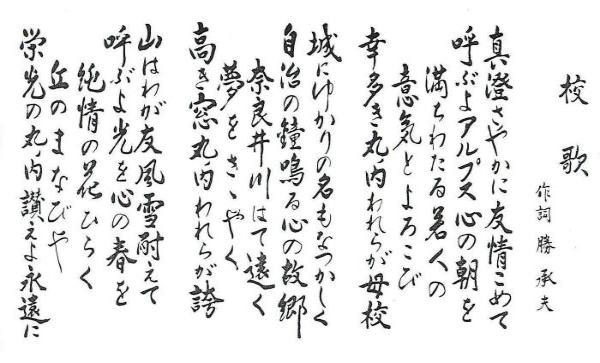 校歌
作詞 勝承夫
真澄さやかに友情こめて
呼ぶよアルプス心の朝を
満ちわたる若人の
意気とよろこび
幸多き丸ノ内われらが母校
城にゆかりの名もなつかしく
自治の鐘鳴る心の故郷
奈良井川はて遠く
夢をさゝやく
高き窓丸ノ内われらが誇
山はわが友風雪耐えて
呼ぶよ光を心の春を
純情の花ひらく
丘のまなびや
栄光の丸ノ内讃えよ永遠に